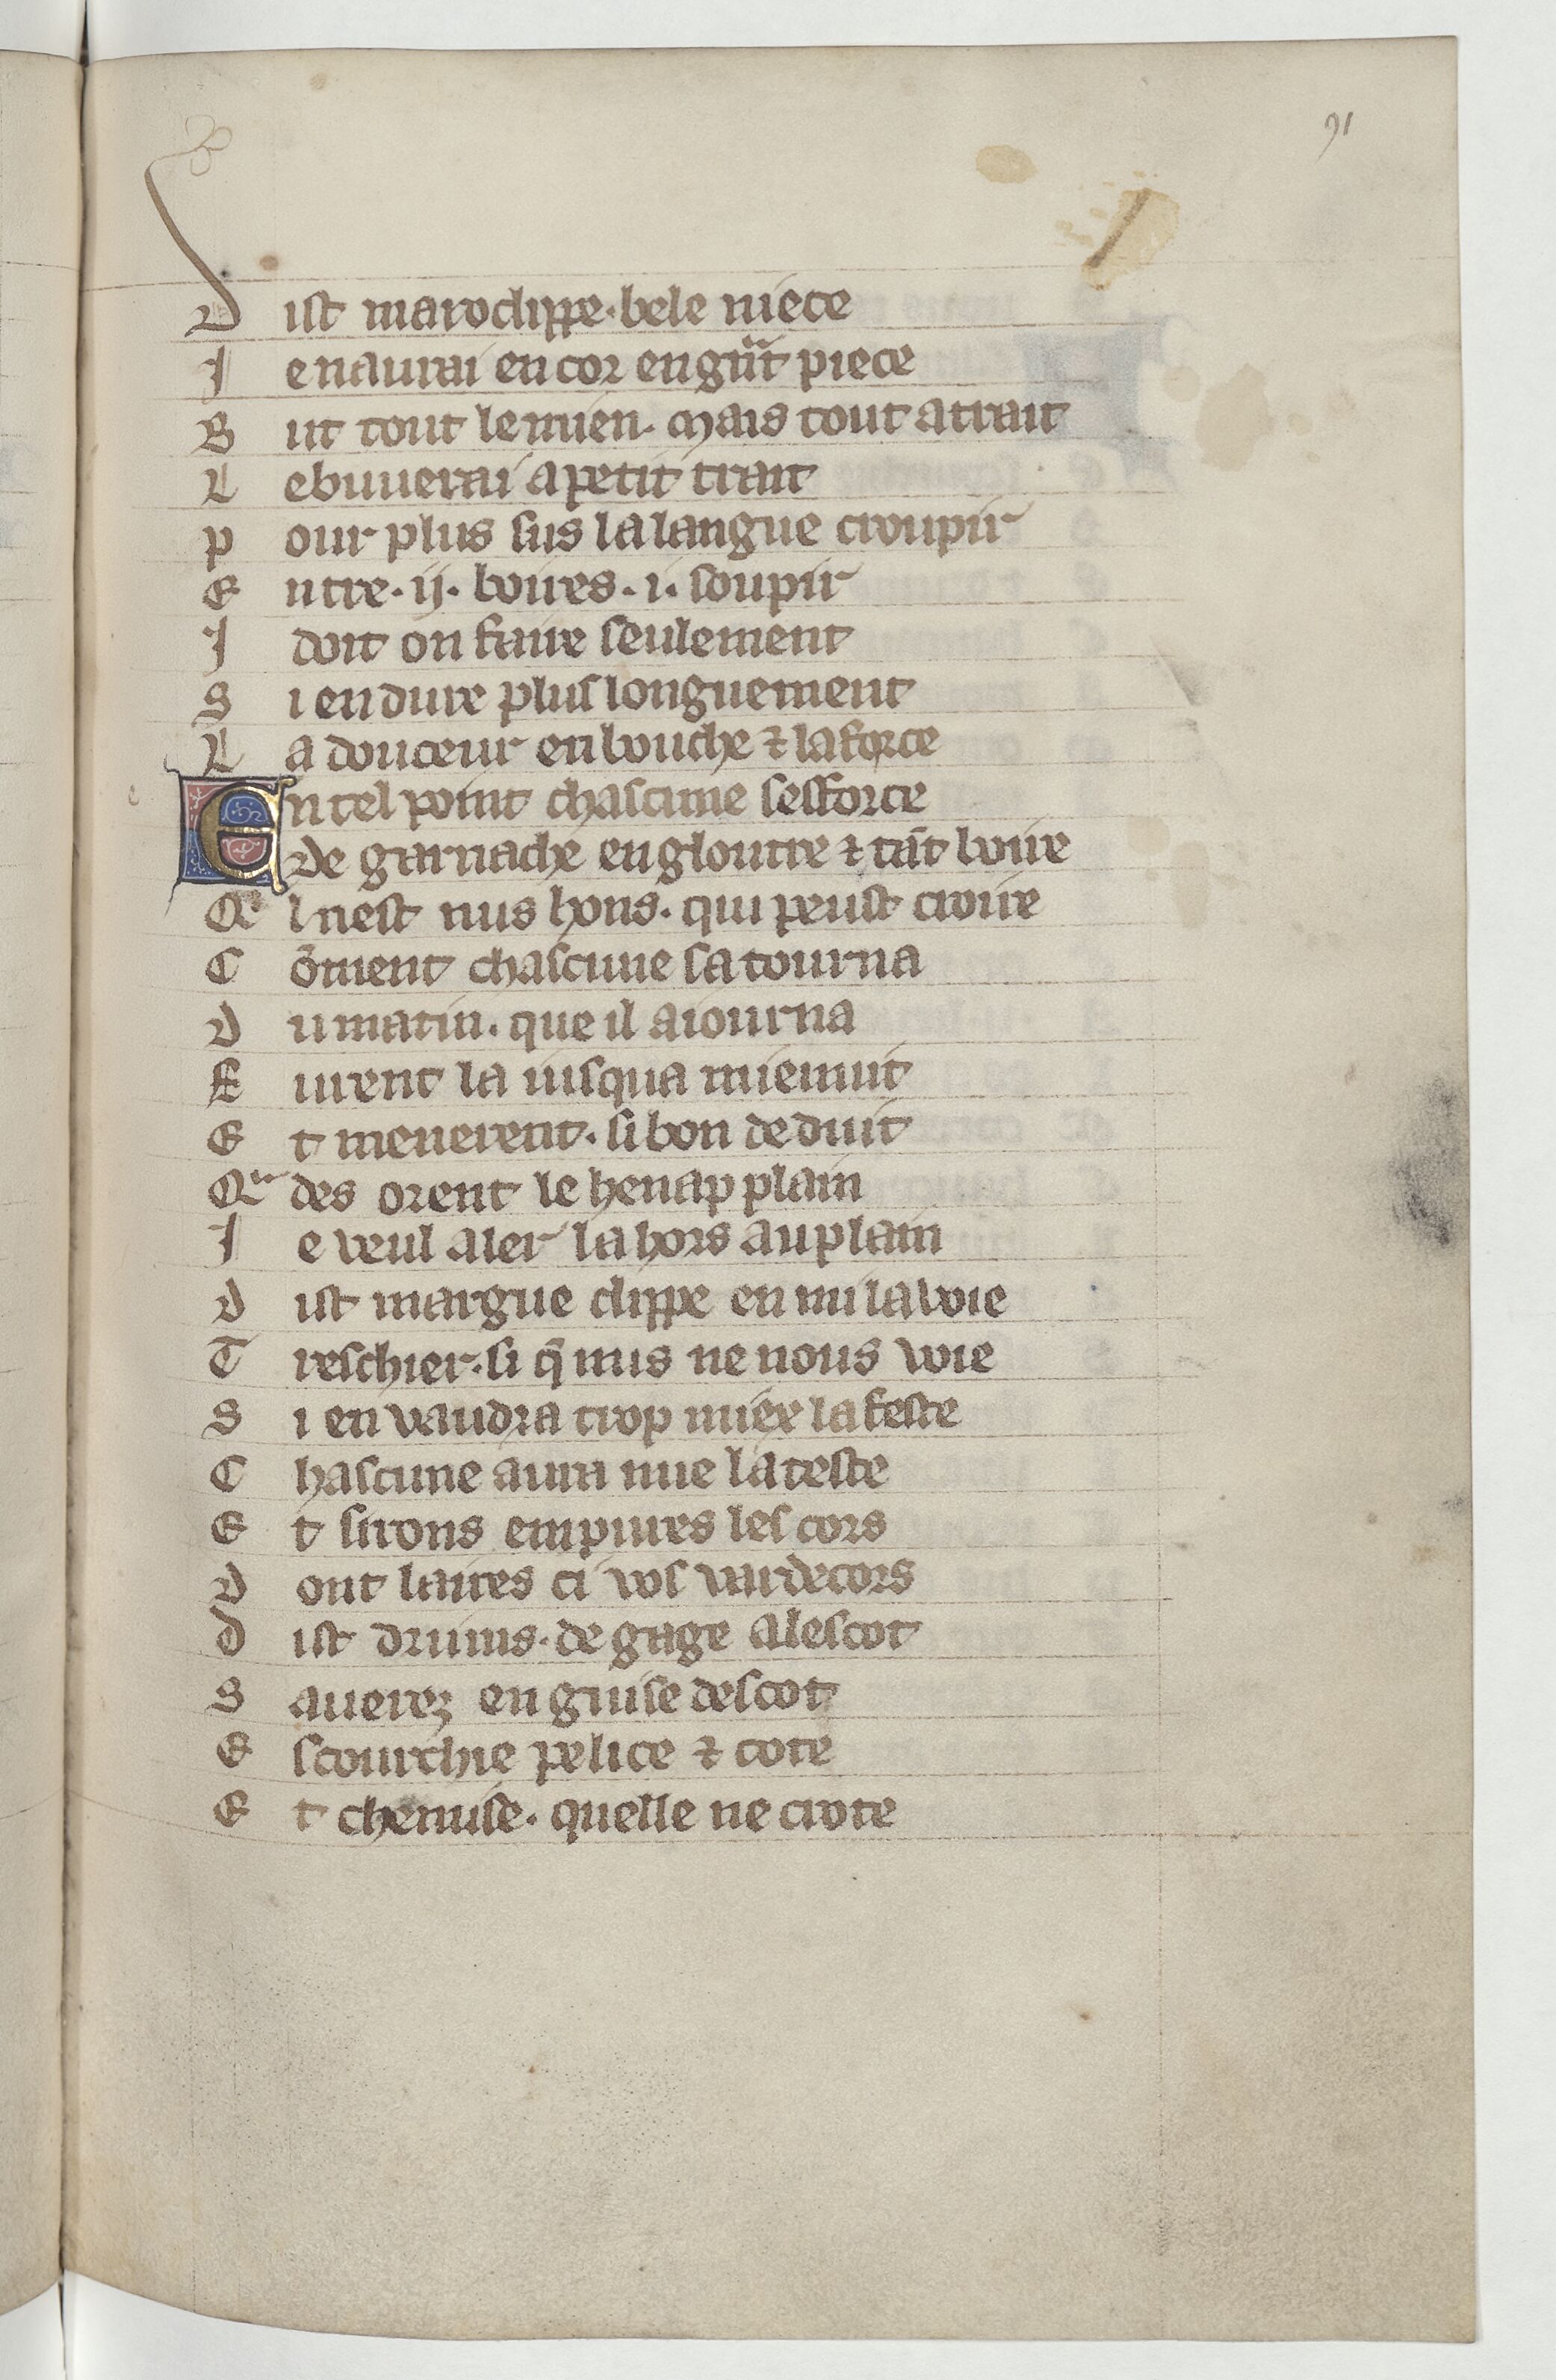 91
Dist maroclippe·bele niece
Je naurai encor en gnt piece
But tout le mien· Mais tout atrait
Le buuerai a petit trait
Pour plus sus la langue croupir
Entre·ij·boires·i·soupir
J doit on faire seulement
Si en dure plus longuement
La douceur en bouche ⁊ la force
En tel point chascune sefforce
de garnache engloutre ⁊ tāt boire
Qel nest nus hons· qui peust croire
Cōment chascune satourna
Du matin· que il aiourna
Furent la iusqua mienuit
Et menerent· si bon deduit
Quades orent le henap plain
Je veul aler la hors au plain
Dist margue clippe en mi la voie
Treschier·si q̄ nus ne nous voie
Si en vaudra trop miex la feste
Chascune aura nue la teste
Et sirons empures les cors
Dont laires ci vos wardecors
Dist druins·de gage a lescot
Sauerez en guise descot
Escourchie pelice ⁊ cote
Et chemise· quelle ne crote